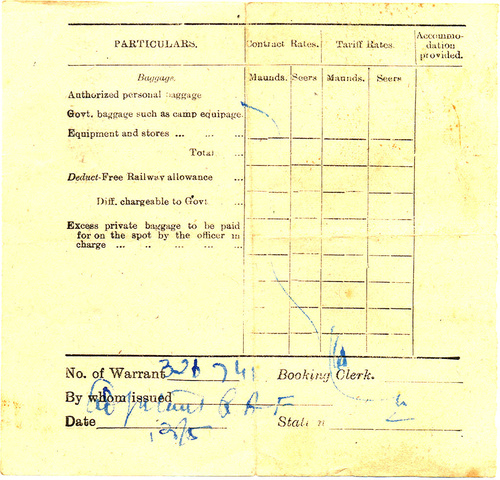 PARTICULARS. Contract Rates. Tariff Rates. Accommo-dation provided.
Baggage. Maunds. Seers Maunds. Seers
Authorized personal baggage
Govt. baggage such as camp equipage.
Equipment and stores ... ... ...
Total ...
Deduct-Free Railway allowance ...
Diff. chargeable to Govt ...
Excess private baggage to be paid
for on the spot by the officer in
charge ... .. ... ... ...
No. of Warrant 326741 Booking Clerk.
By whom issued Adjutant R A F
Date 12/5 Station